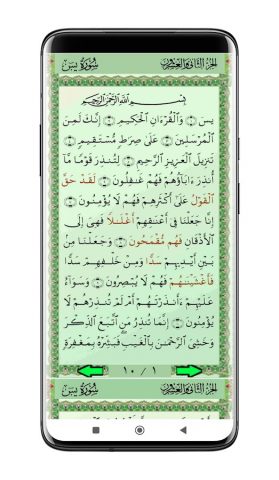 سُورَةُ يسٓ الجزء الثاني والعشرون
بِسْمِ اللَّهِ الرَّحْمَٰنِ الرَّحِيمِ
يسٓ ۝ وَالْقُرْءَانِ الْحَكِيمِ ۝ إِنَّكَ لَمِنَ
الْمُرْسَلِينَ ۝ عَلَىٰ صِرَٰطٍ مُّسْتَقِيمٍ ۝
تَنزِيلَ الْعَزِيزِ الرَّحِيمِ ۝ لِتُنذِرَ قَوْمًا مَّا
أُنذِرَ ءَابَآؤُهُمْ فَهُمْ غَٰفِلُونَ ۝ لَقَدْ حَقَّ
الْقَوْلُ عَلَىٰٓ أَكْثَرِهِمْ فَهُمْ لَا يُؤْمِنُونَ ۝
إِنَّا جَعَلْنَا فِىٓ أَعْنَٰقِهِمْ أَغْلَٰلًا فَهِىَ إِلَى
الْأَذْقَانِ فَهُم مُّقْمَحُونَ ۝ وَجَعَلْنَا مِنۢ
بَيْنِ أَيْدِيهِمْ سَدًّا وَمِنْ خَلْفِهِمْ سَدًّا
فَأَغْشَيْنَٰهُمْ فَهُمْ لَا يُبْصِرُونَ ۝ وَسَوَآءٌ
عَلَيْهِمْ ءَأَنذَرْتَهُمْ أَمْ لَمْ تُنذِرْهُمْ لَا
يُؤْمِنُونَ ۝ إِنَّمَا تُنذِرُ مَنِ اتَّبَعَ الذِّكْرَ
وَخَشِىَ الرَّحْمَٰنَ بِالْغَيْبِ ۖ فَبَشِّرْهُ بِمَغْفِرَةٍ
١ / ١٠
سُورَةُ يسٓ الجزء الثاني والعشرون